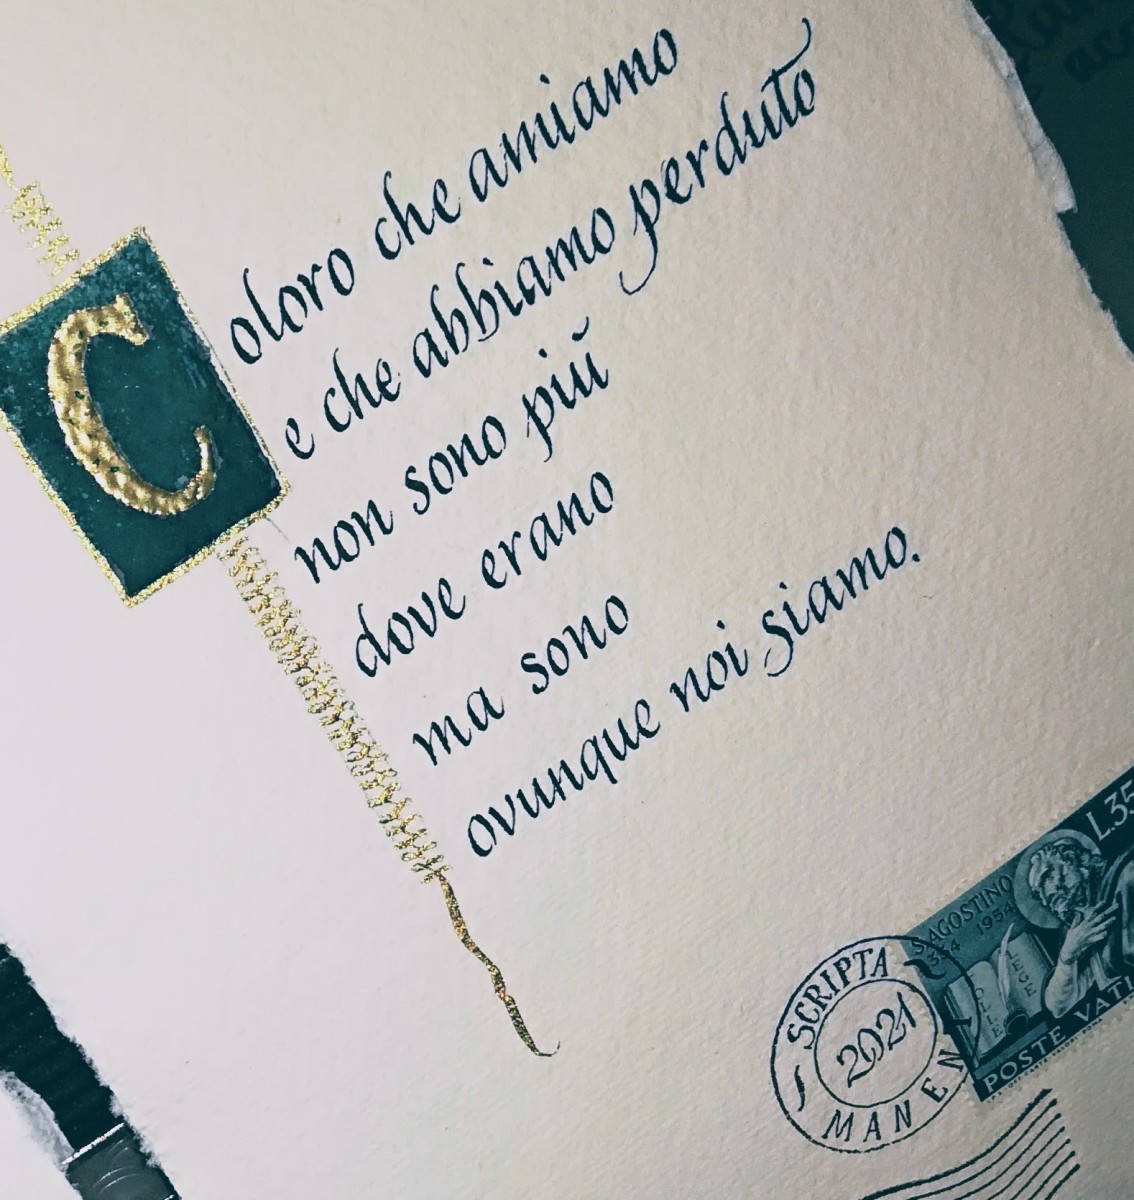 Coloro che amiamo
e che abbiamo perduto
non sono più
dove erano
ma sono
ovunque noi siamo.
L.35
S.AGOSTINO
354 1954
TOLLE
LEGE
POSTE VATI
SCRIPTA
2021
MANEN